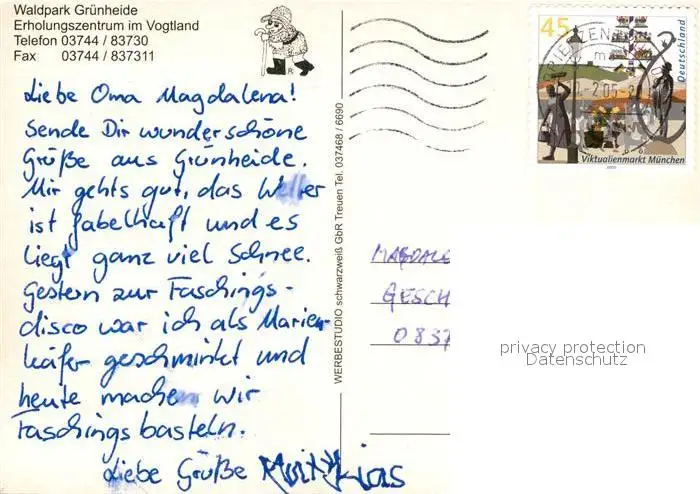 Waldpark Grünheide
Erholungszentrum im Vogtland
Telefon 03744 / 83730
Fax 03744 / 837311
Liebe Oma Magdalena!
Sende Dir wunderschöne
Grüße aus Grünheide.
Mir gehts gut, das Wetter
ist fabelhaft und es
liegt ganz viel Schnee.
Gestern zur Faschings-
disco war ich als Marien-
käfer geschminkt und
heute machen wir
Faschingsbasteln.
Liebe Grüße
WERBESTUDIO schwarzweiß GbR Treuen Tel. 037468 / 6690
45
Deutschland
Viktualienmarkt München
MAGDALE
GESCH
0837
privacy protection
Datenschutz